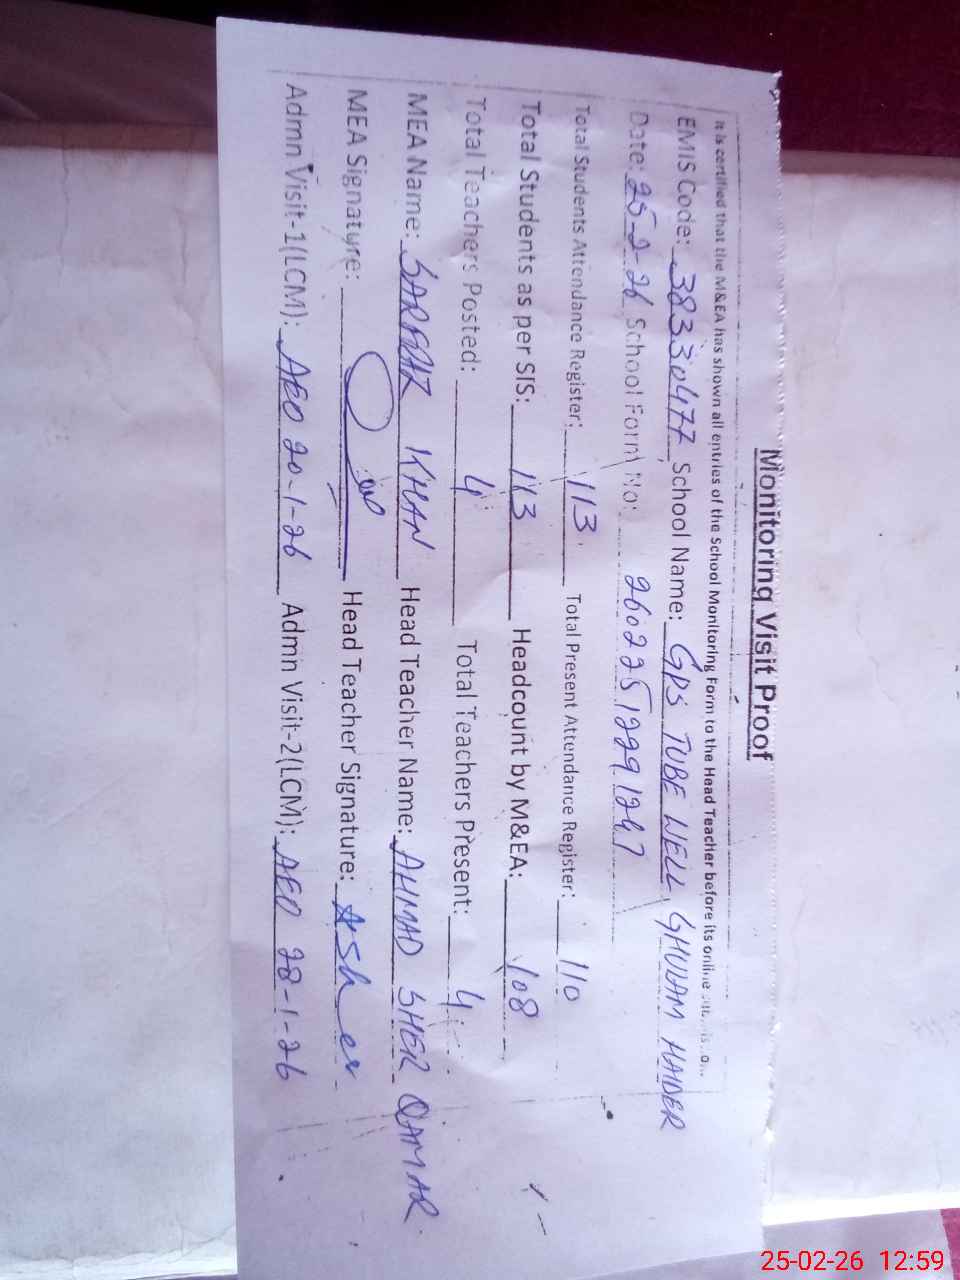 Monitoring Visit Proof
It is certified that the M&EA has shown all entries of the School Monitoring Form to the Head Teacher before its online
EMIS Code: 38330477 School Name: GPS TUBE WELL GHULAM HAIDER
Date: 25-2-26 School Form No: 26022512291247
Total Students Attendance Register: 113 Total Present Attendance Register: 110
Total Students as per SIS: 113 Headcount by M&EA: 108
Total Teachers Posted: 4 Total Teachers Present: 4
MEA Name: SARFRAZ KHAN Head Teacher Name: AHMAD SHER QAMAR
MEA Signature: Head Teacher Signature: Asher
Admn Visit-1(LCM): AEO 20-1-26 Admn Visit-2(LCM): AEO 28-1-26
25-02-26 12:59